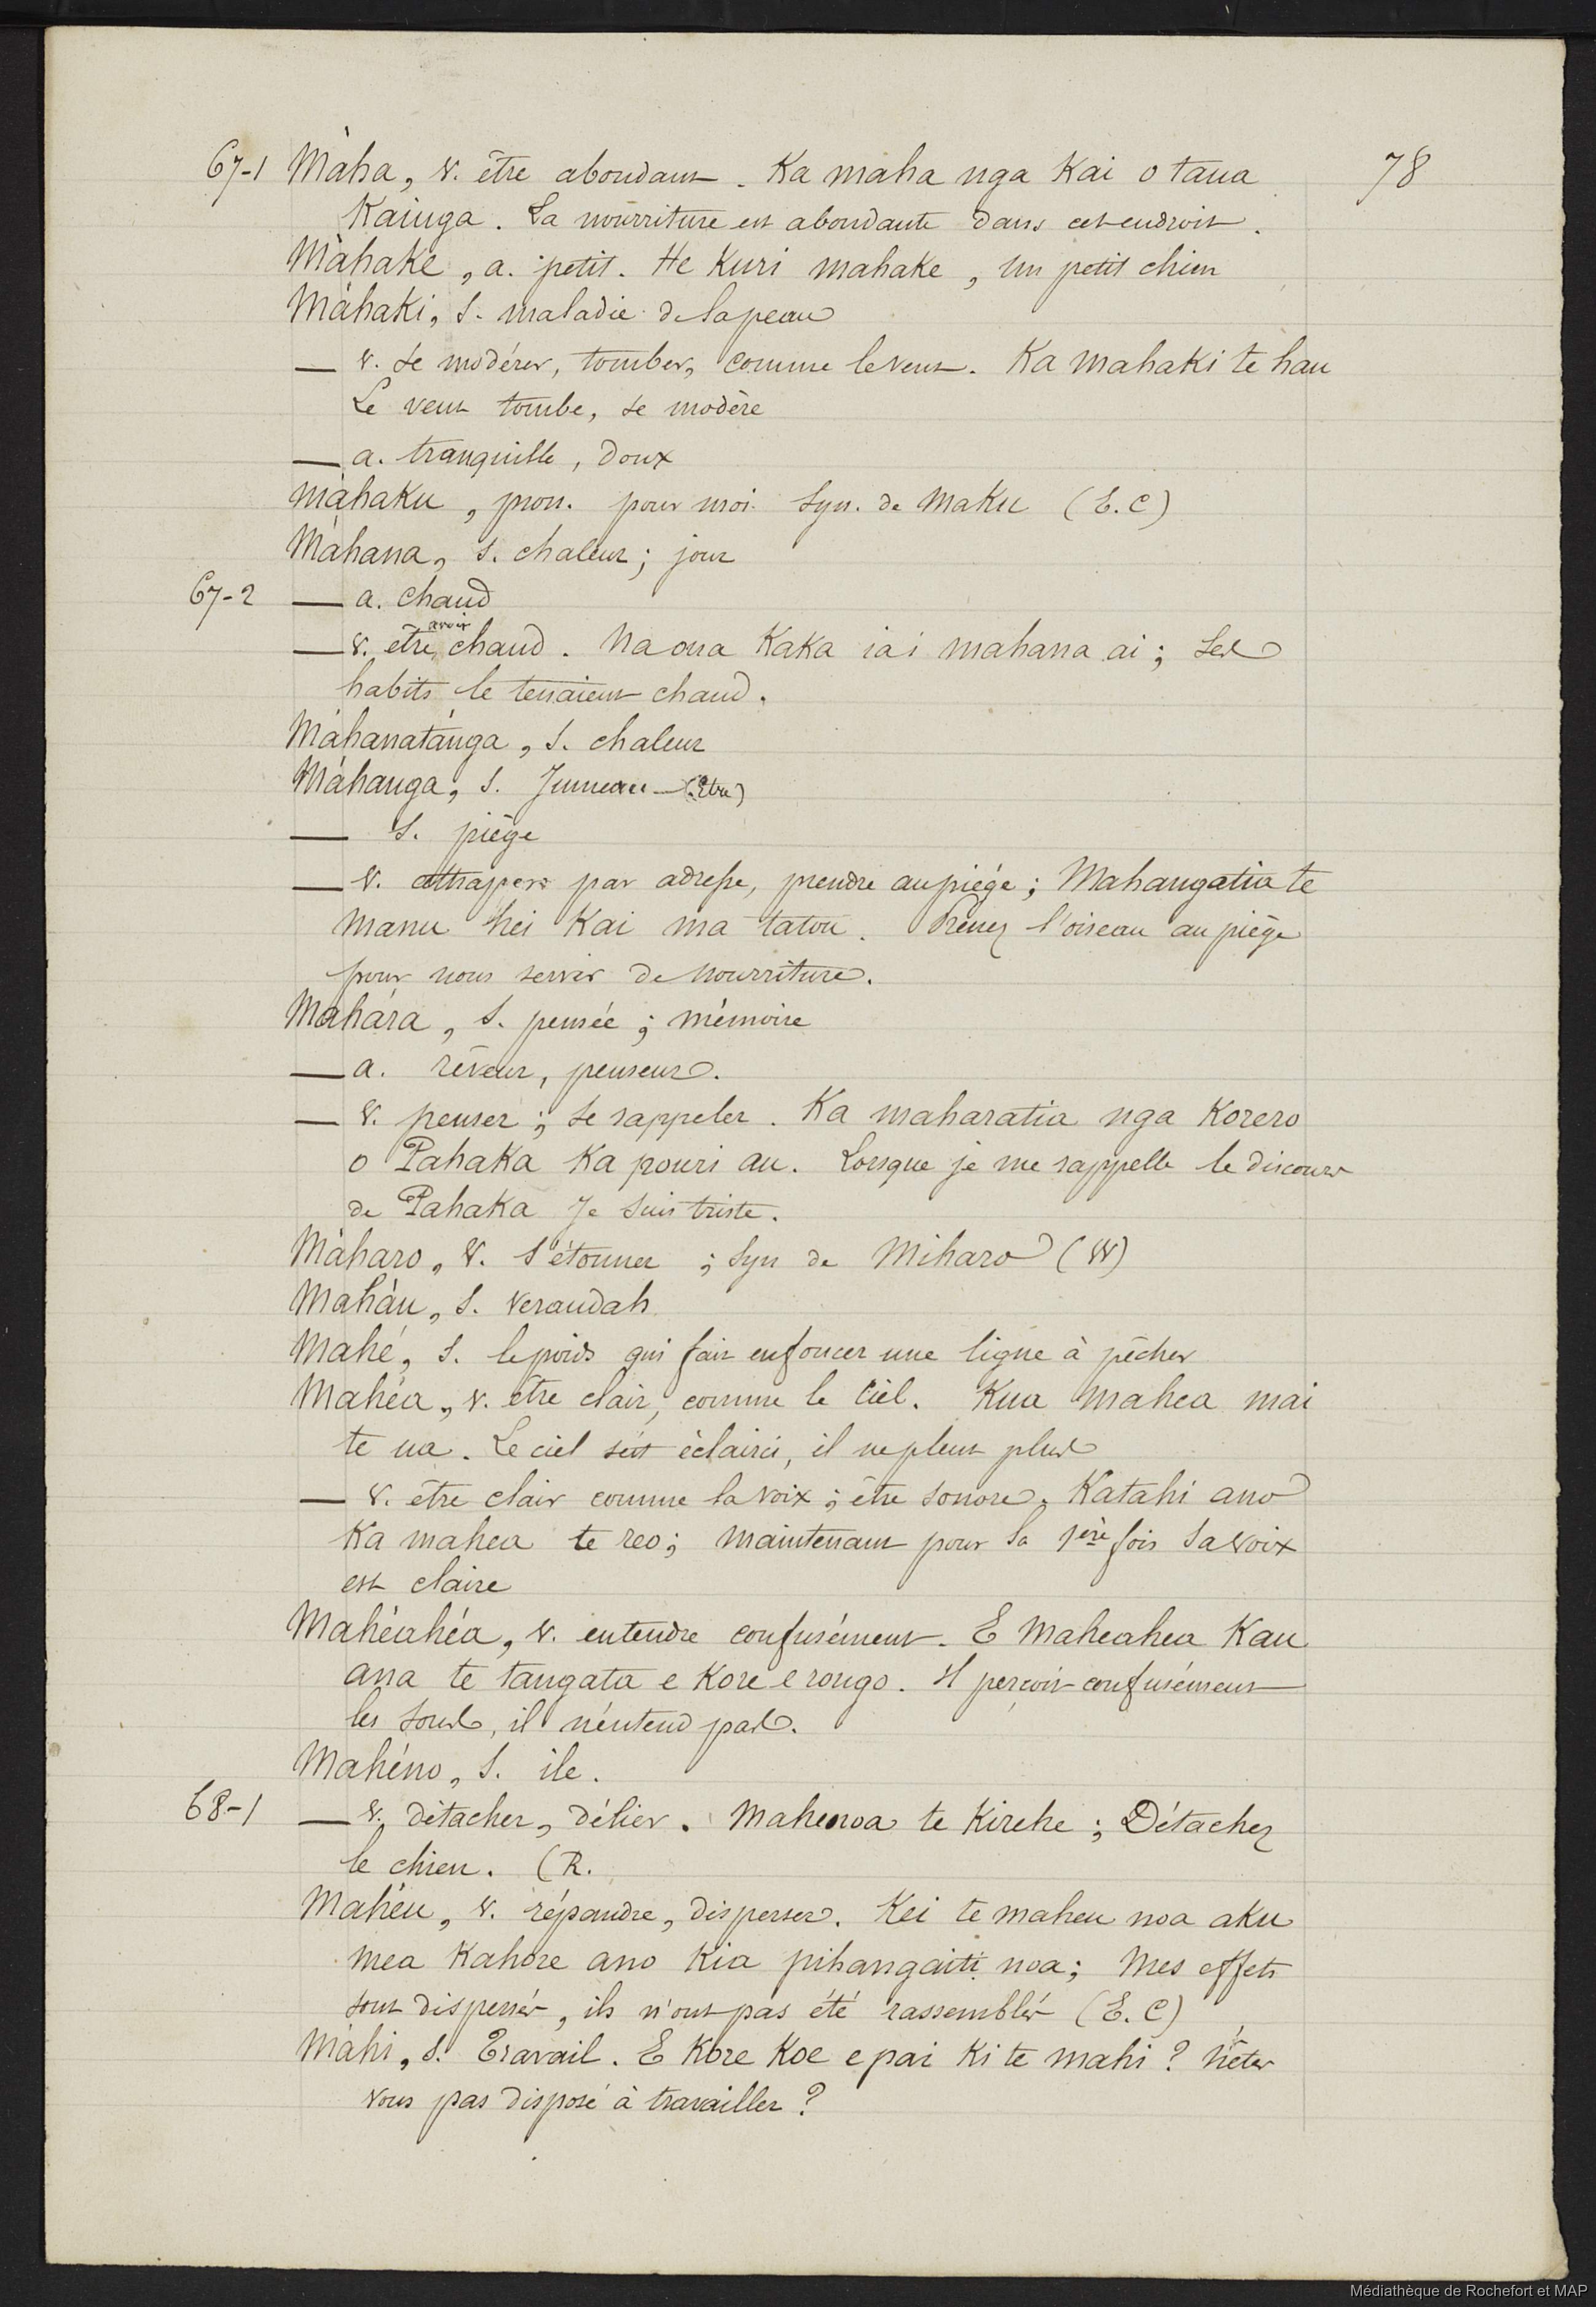 67-1 Màha, v. être abondant. Ka maha nga Kai o taua 78
Kainga. La nourriture est abondante dans cet endroit.
Màhake, a. petit. He Kuri mahake, un petit chien
Màhaki, s. maladie de la peau
— v. se modérer, tomber, comme le vent. Ka mahaki te hau
Le vent tombe, se modère
— a. tranquille, doux
màhaku, pron. pour moi Syn. de Maku (E.C)
Màhana, s. chaleur; jour
67-2 — a. chaud
— v. être avoir chaud. Na ona Kaka ia i mahana ai; Ses
habits le tenaient chaud.
Màhanatànga, s. chaleur
Màhanga, s. Jumeau
— s. piège
— v. attraper par adresse, prendre au piège; Mahangatia te
manu hei Kai ma tatou. Prenez l'oiseau au piège
pour nous servir de nourriture.
Mahára, s. pensée; mémoire
— a. rêveur, penseur.
— v. penser; se rappeler. Ka maharatia nga Korero
o Pahaka Ka pouri au. Lorsque je me rappelle le discours
de Pahaka Je suis triste.
Màharo, v. s'étonner; Syn de Miharo (W)
Mahàu, s. verandah
Mahé, s. le poids qui fait enfoncer une ligne à pêcher
Mahéa, v. être clair, comme le ciel. Kua mahea mai
te ua. Le ciel s'est éclairci, il ne pleut plus
— v. être clair comme la voix; être sonore. Katahi ano
Ka mahea te reo; maintenant pour la 1ère fois sa voix
est claire
Mahéahéa, v. entendre confusément. E maheahea Kau
ana te tangata e Kore e rongo. Il perçoit confusément
les sons, il n'entend pas.
Mahéno, s. ile.
68-1 — v. détacher, délier. Mahenoa te Kirehe; Détachez
le chien. (R.
Mahéu, v. répandre, disperser. Kei te maheu noa aku
mea Kahore ano Kia pihangaiti noa; Mes effets
sont dispersés, ils n'ont pas été rassemblés (E.C)
Màhi, s. Travail. E Kore Koe e pai Ki te mahi? N'êtes
vous pas disposé à travailler?
Médiathèque de Rochefort et MAP